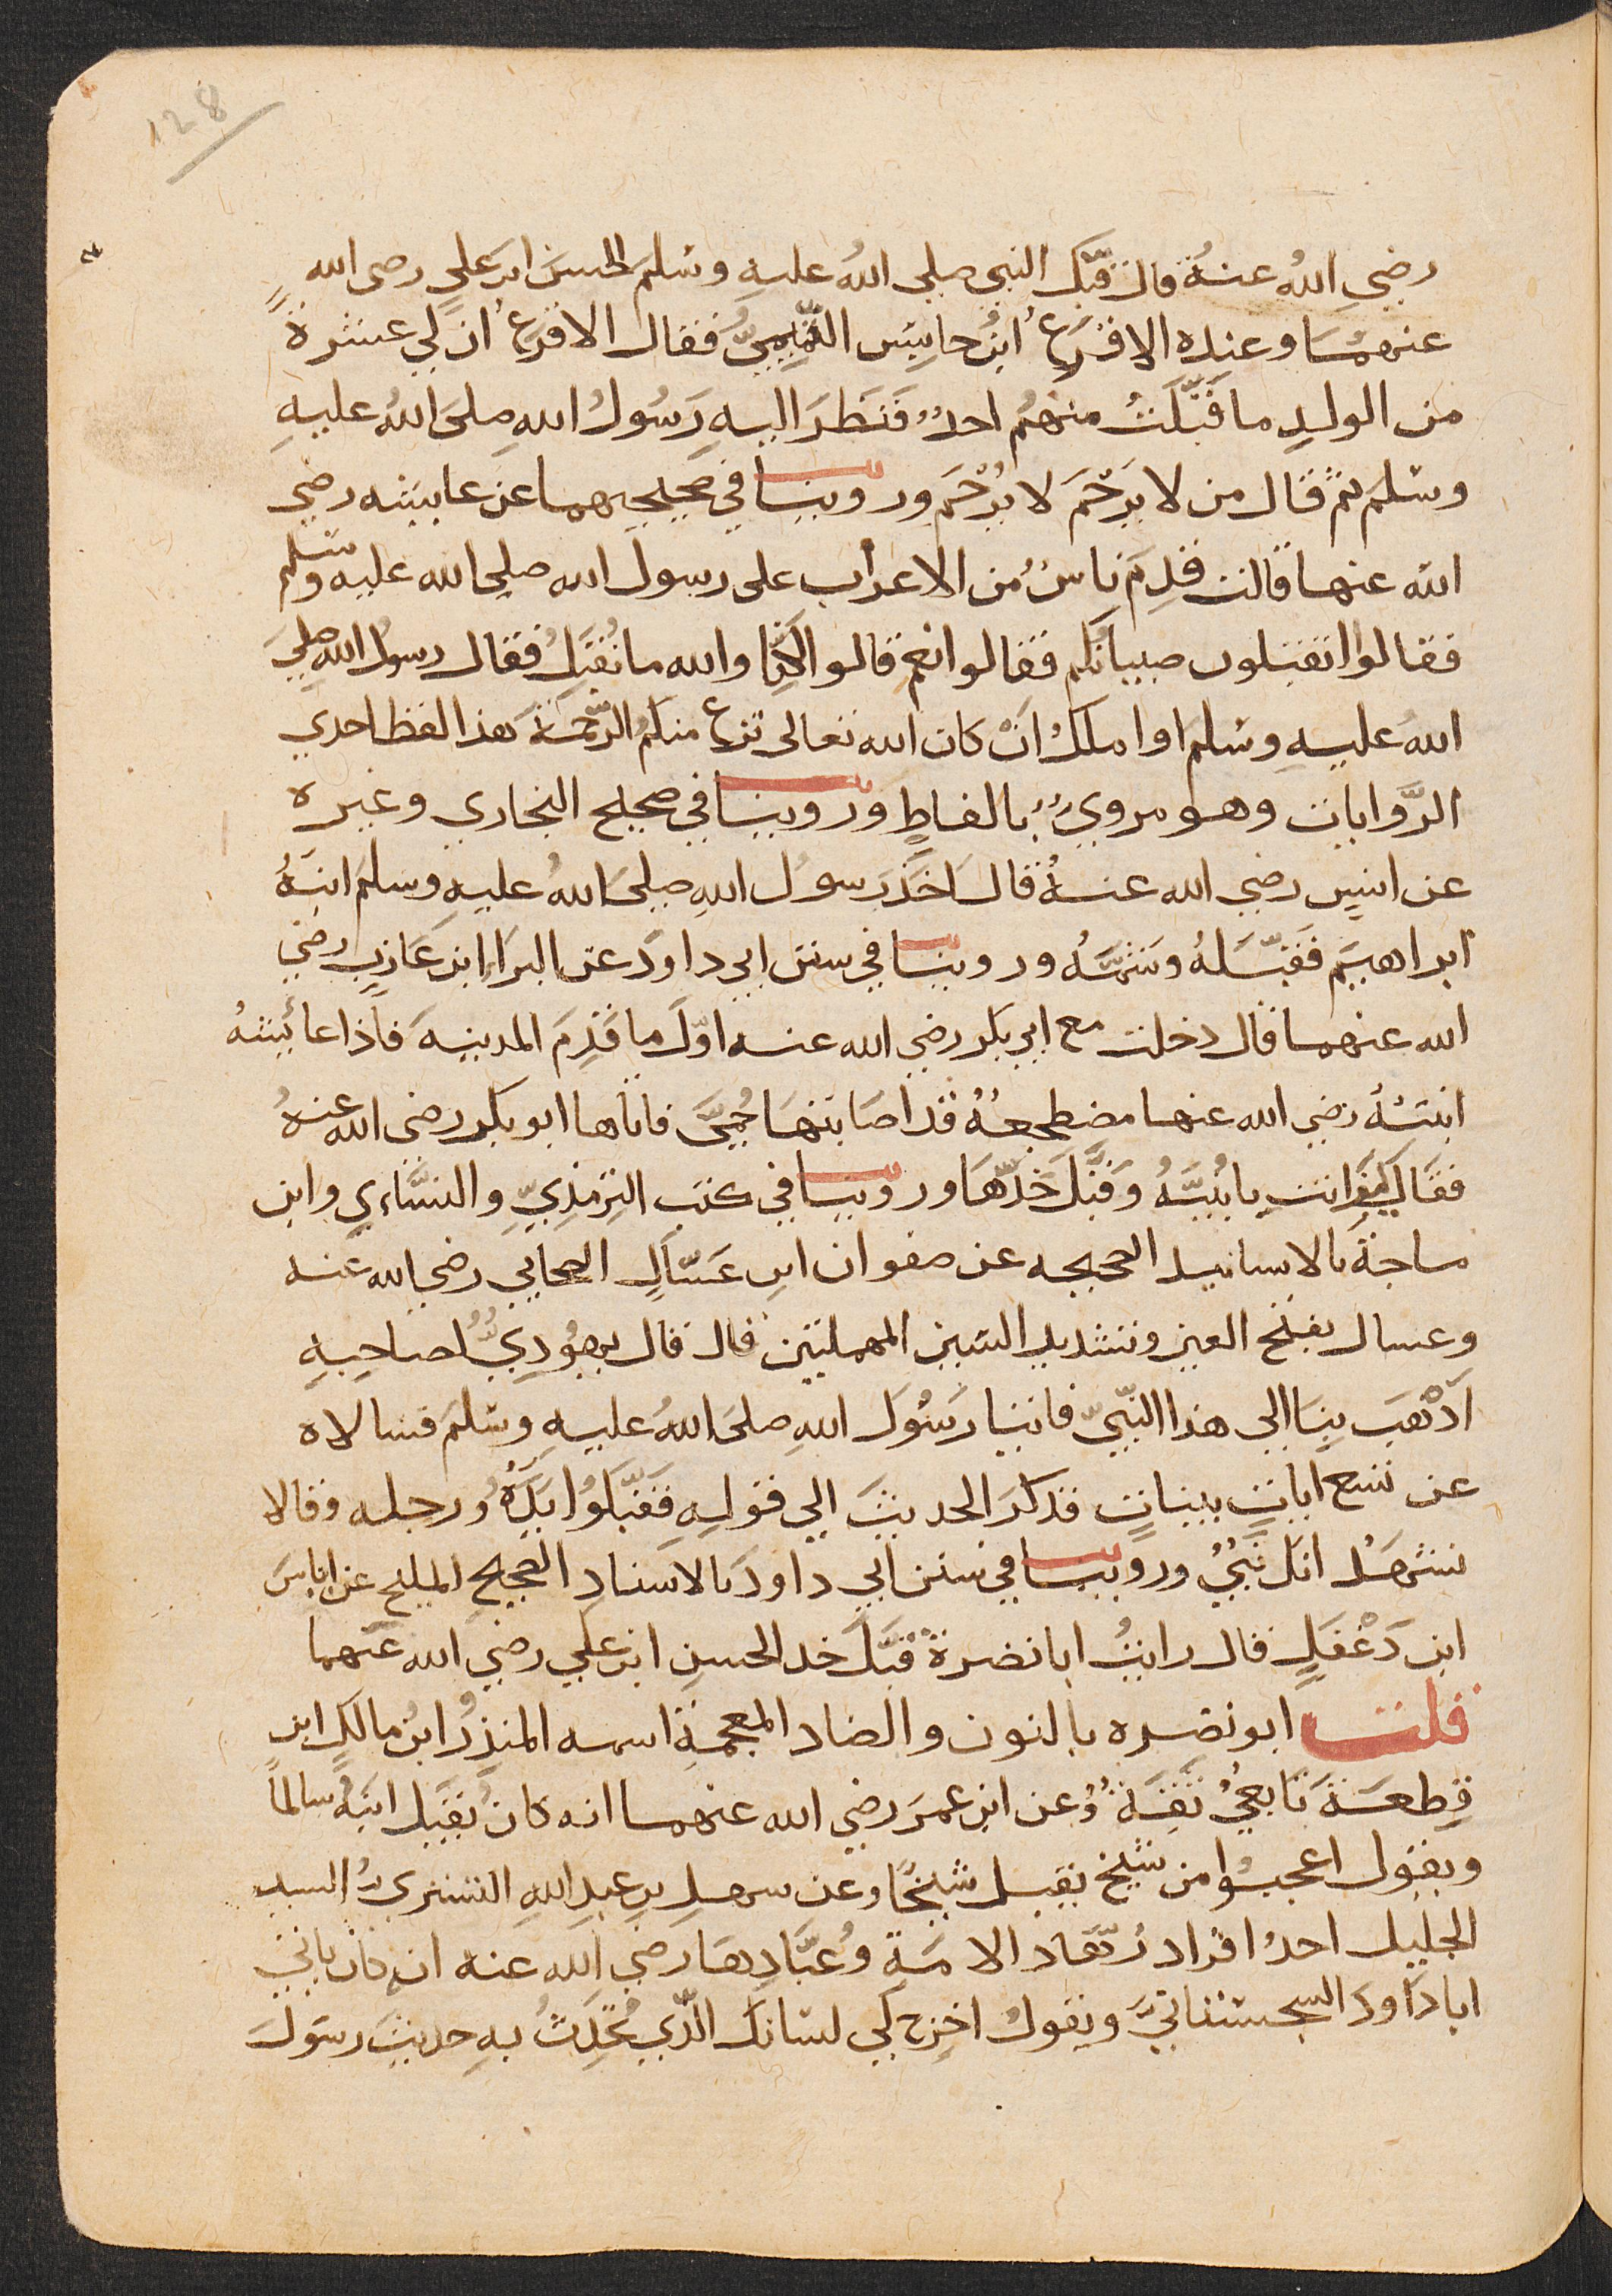 128
رضي اللهُ عنهُ قال قبّل النبي صلى اللهُ عليهِ وسلم الحسنَ ابن عليٍ رضى الله
عنهمُا وعنده الاقرَعُ ابنُ حابِسٍ التَّمِيميُّ فقال الاقرَعُ ان لي عشرةً
من الولدِ ما قَبَّلتُ منهُم احدٌ فَنَظَرَ اليهِ رَسُولُ اللهِ صلىَ اللهُ عليهِ
وسلم ثم قال من لا يَرحَم لا يُرْحَم وروينا في صحيحيهما عن عايشه رضي
الله عنها قالت قَدِمَ ناسٌ من الاعراب على رسول الله صلى الله عليه وسلم
فقالوا اتقبلون صبيانكم فقالوا نعم قالوا لكِنّا والله ما نُقبّلُ فقال رسولُ اللهِ صلىَ
اللهُ عليهِ وسلم اوا ملكُ انْ كان الله تعالى نزع منكم الرَّحمةَ هذا لفظ احدي
الرَّوايات وهو مرويٌ بالفاظٍ وروينا في صحيح البخاري وغيره
عن انسٍ رضي الله عنهُ قالَ اخذَ رسولُ اللهِ صلىَ اللهُ عليهِ وسلمَ ابنَهُ
ابراهيمَ فقبّلهُ وشمَّهُ وروينا في سنن ابي داودَ عن البراء ابن عَازِبٍ رضي
الله عنهما قال دخلت مع ابي بكر رضي الله عنه اوّلَ ما قَدِمَ المدينهَ فاذا عائشهُ
ابنتهُ رضي الله عنها مضطجعهٌ قد اصَابتهَا حُمىَّ فاتاها ابو بكر رضى الله عنهُ
فقال كيفَ انت يا بُنيَّهُ وَقبَّلَ خَدّهَا وروينا في كتب التِرمذِيِّ والنسَّاءيِ وابن
ماجةَ بالاسانيد الصحيحه عن صفوان ابنِ عَسّالٍ الصحابي رضي الله عنه
وعسال بفتح العين وتشديد السين المهملتين قال قال يهُودِيٌ لصاحِبهِ
اَذهَب بِنا الى هذا النّبيّ فاتيا رَسُولَ اللهِ صلىَ اللهُ عليهِ وسلمَ فسالاه
عن تسع اياتٍ بيناتٍ فذكرَ الحديثَ الي قولهِ فقَبّلوُا يَدَهُ ورجله وقالا
نشهدُ انك نبيٌ وروينا في سنن ابي داودَ بالاسنادِ الصحيح المليح عن اياسَ
ابن دَغْفَلٍ قال رايتُ ابا نضرةَ قبَّلَ خد الحسنِ ابن علي رضي الله عنهما
قلت ابو نضره بالنون والضاد المعجمةِ اسمه المنذِرُ ابنُ مالكٍ ابن
قِطعَةَ تابعيٌ ثقةٌ وعن ابن عمرَ رضي الله عنهما انه كان يُقبّل ابنَهُ سالماً
ويقول اعجبوُا من شيخ يقبل شيخًا وعن سهلِ بن عبدِ اللهِ التستريُ السيد
الجليل احدُ افراد زُهّاد الامةِ وعُبّادِهَا رضي الله عنه انه كان ياتي
ابا دَاودَ السجستانيَّ ويقولُ اخرِج لي لسَانكَ الذّي تُحَدِثُ بهِ حديثَ رسَولَ